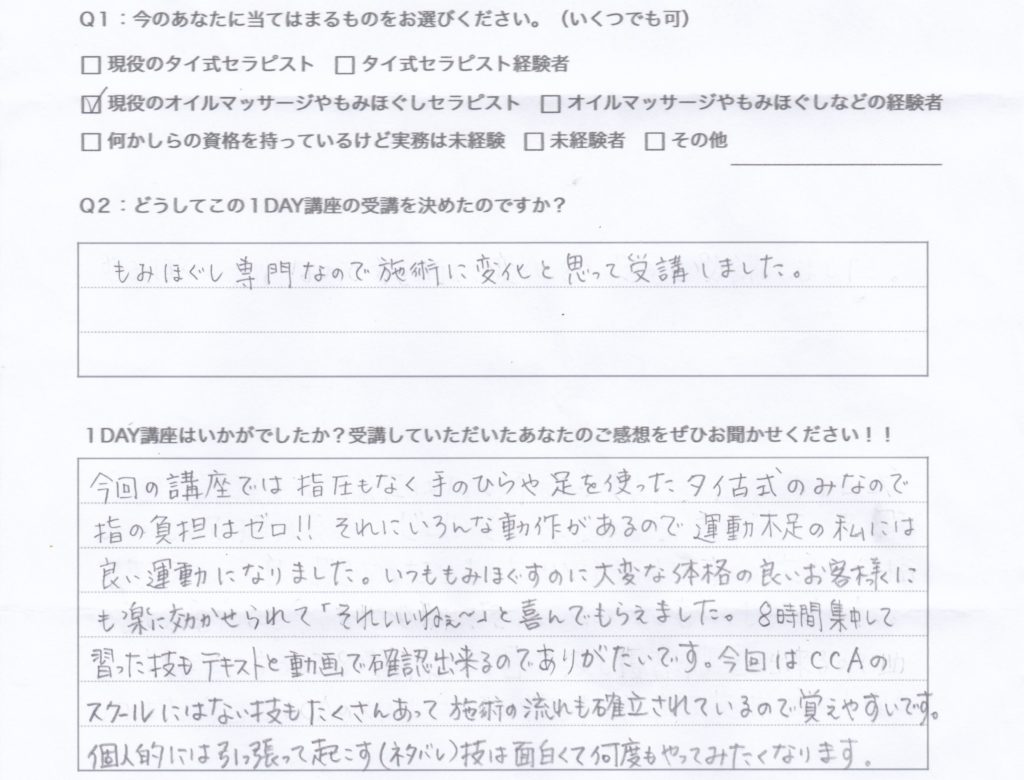 Q1：今のあなたに当てはまるものをお選びください。（いくつでも可）
□現役のタイ式セラピスト □タイ式セラピスト経験者
☑現役のオイルマッサージやもみほぐしセラピスト □オイルマッサージやもみほぐしなどの経験者
□何かしらの資格を持っているけど実務は未経験 □未経験者 □その他
Q2：どうしてこの1DAY講座の受講を決めたのですか？
もみほぐし専門なので施術に変化と思って受講しました。
1DAY講座はいかがでしたか？受講していただいたあなたのご感想をぜひお聞かせください！！
今回の講座では指圧もなく手のひらや足を使ったタイ古式のみなので
指の負担はゼロ!! それにいろんな動作があるので運動不足の私には
良い運動になりました。いつももみほぐすのに大変な体格の良いお客様に
も楽に効かせられて「それいいねぇ〜」と喜んでもらえました。8時間集中して
習った技もテキストと動画で確認出来るのでありがたいです。今回はCCAの
スクールにはない技もたくさんあって施術の流れも確立されているので覚えやすいです。
個人的には引っ張って起こす(ネタバレ)技は面白くて何度もやってみたくなります。